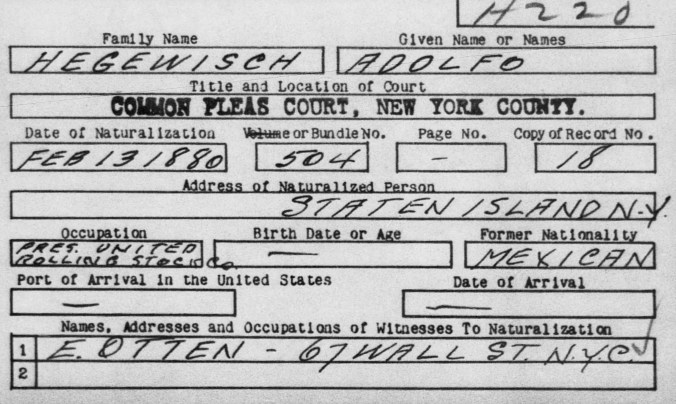 H220
Family Name Given Name or Names
HEGEWISCH ADOLFO
Title and Location of Court
COMMON PLEAS COURT, NEW YORK COUNTY.
Date of Naturalization Volume or Bundle No. Page No. Copy of Record No.
FEB 13 1880 504 – 18
Address of Naturalized Person
STATEN ISLAND N.Y.
Occupation Birth Date or Age Former Nationality
PRES. UNITED
ROLLING STOCK Co. — MEXICAN
Port of Arrival in the United States Date of Arrival
— —
Names, Addresses and Occupations of Witnesses To Naturalization
1 E. OTTEN - 67 WALL ST. N.Y.C.
2